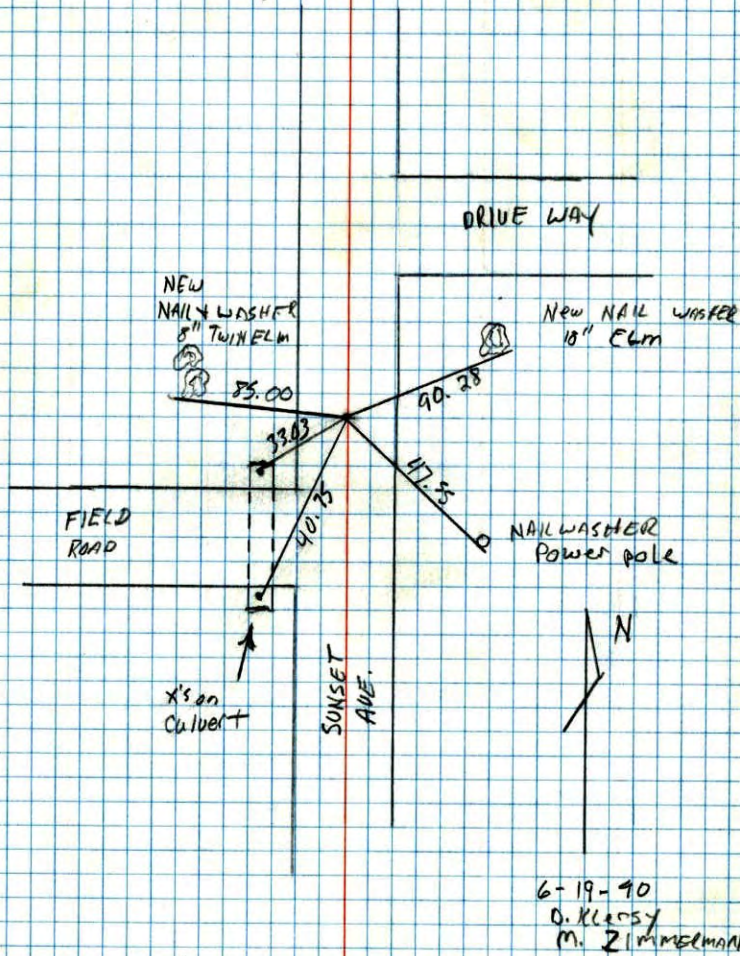 DRIVE WAY
NEW
NAIL & WASHER
8" TWIN ELM
New NAIL WASHER
18" ELM
85.00
90.28
33.03
47.55
40.75
FIELD
ROAD
NAIL WASHER
Power pole
N
X's on
Culvert
SUNSET
AVE.
6-19-90
D. Klersy
M. ZIMMERMAN